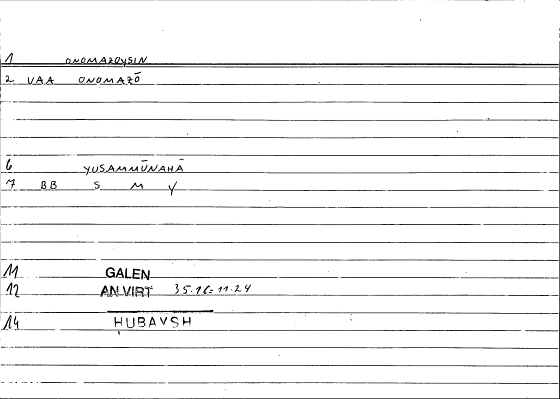 1 ONOMAZOYSIN
2 VAA ONOMAZŌ
6 YUSAMMŪNAHĀ
7 BB S M Y
11 GALEN
12 AN VIRT 35.16 = 11.24
14 ḤUBAYSH